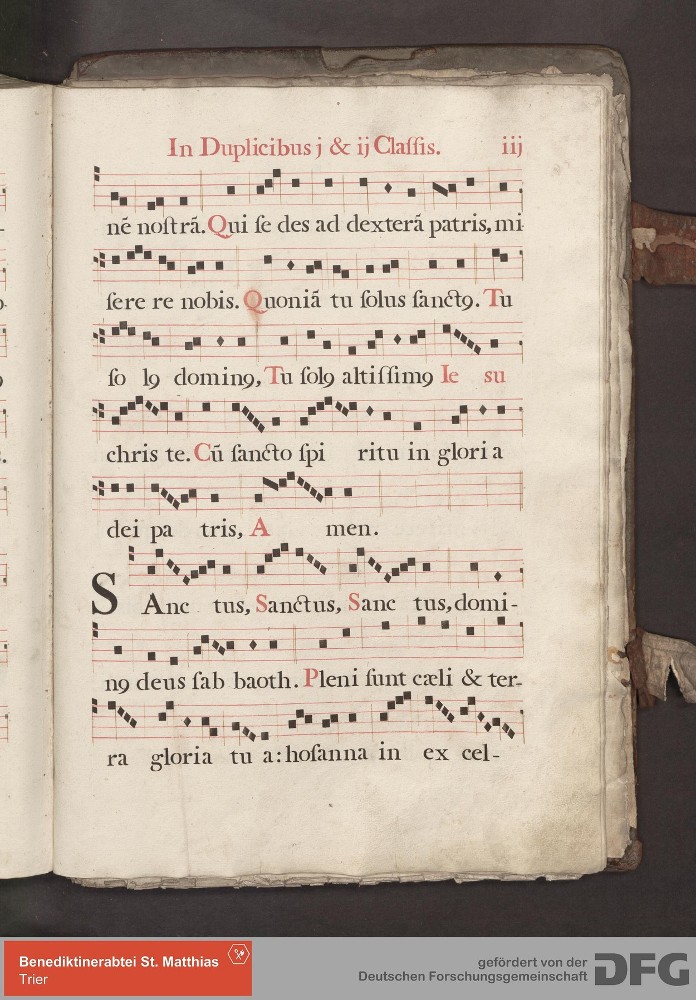 In Duplicibus j & ij Claſſis. iij
nē noſtrā. Qui ſe des ad dexterā patris, mi-
ſere re nobis. Quoniā tu ſolus ſanctꝰ. Tu
ſo lꝰ dominꝰ, Tu ſolꝰ altiſſimꝰ Ie su
chris te. Cū ſancto ſpi ritu in gloria
dei pa tris, A men.
SAnc tus, Sanctus, Sanc tus, domi-
nꝰ deus ſab baoth. Pleni ſunt cæli & ter-
ra gloria tu a: hoſanna in ex cel-
Benediktinerabtei St. Matthias
Trier
gefördert von der
Deutschen Forschungsgemeinschaft
DFG